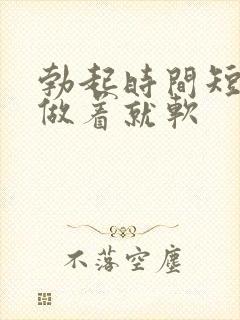 勃起時間短
做着就軟
不落空塵